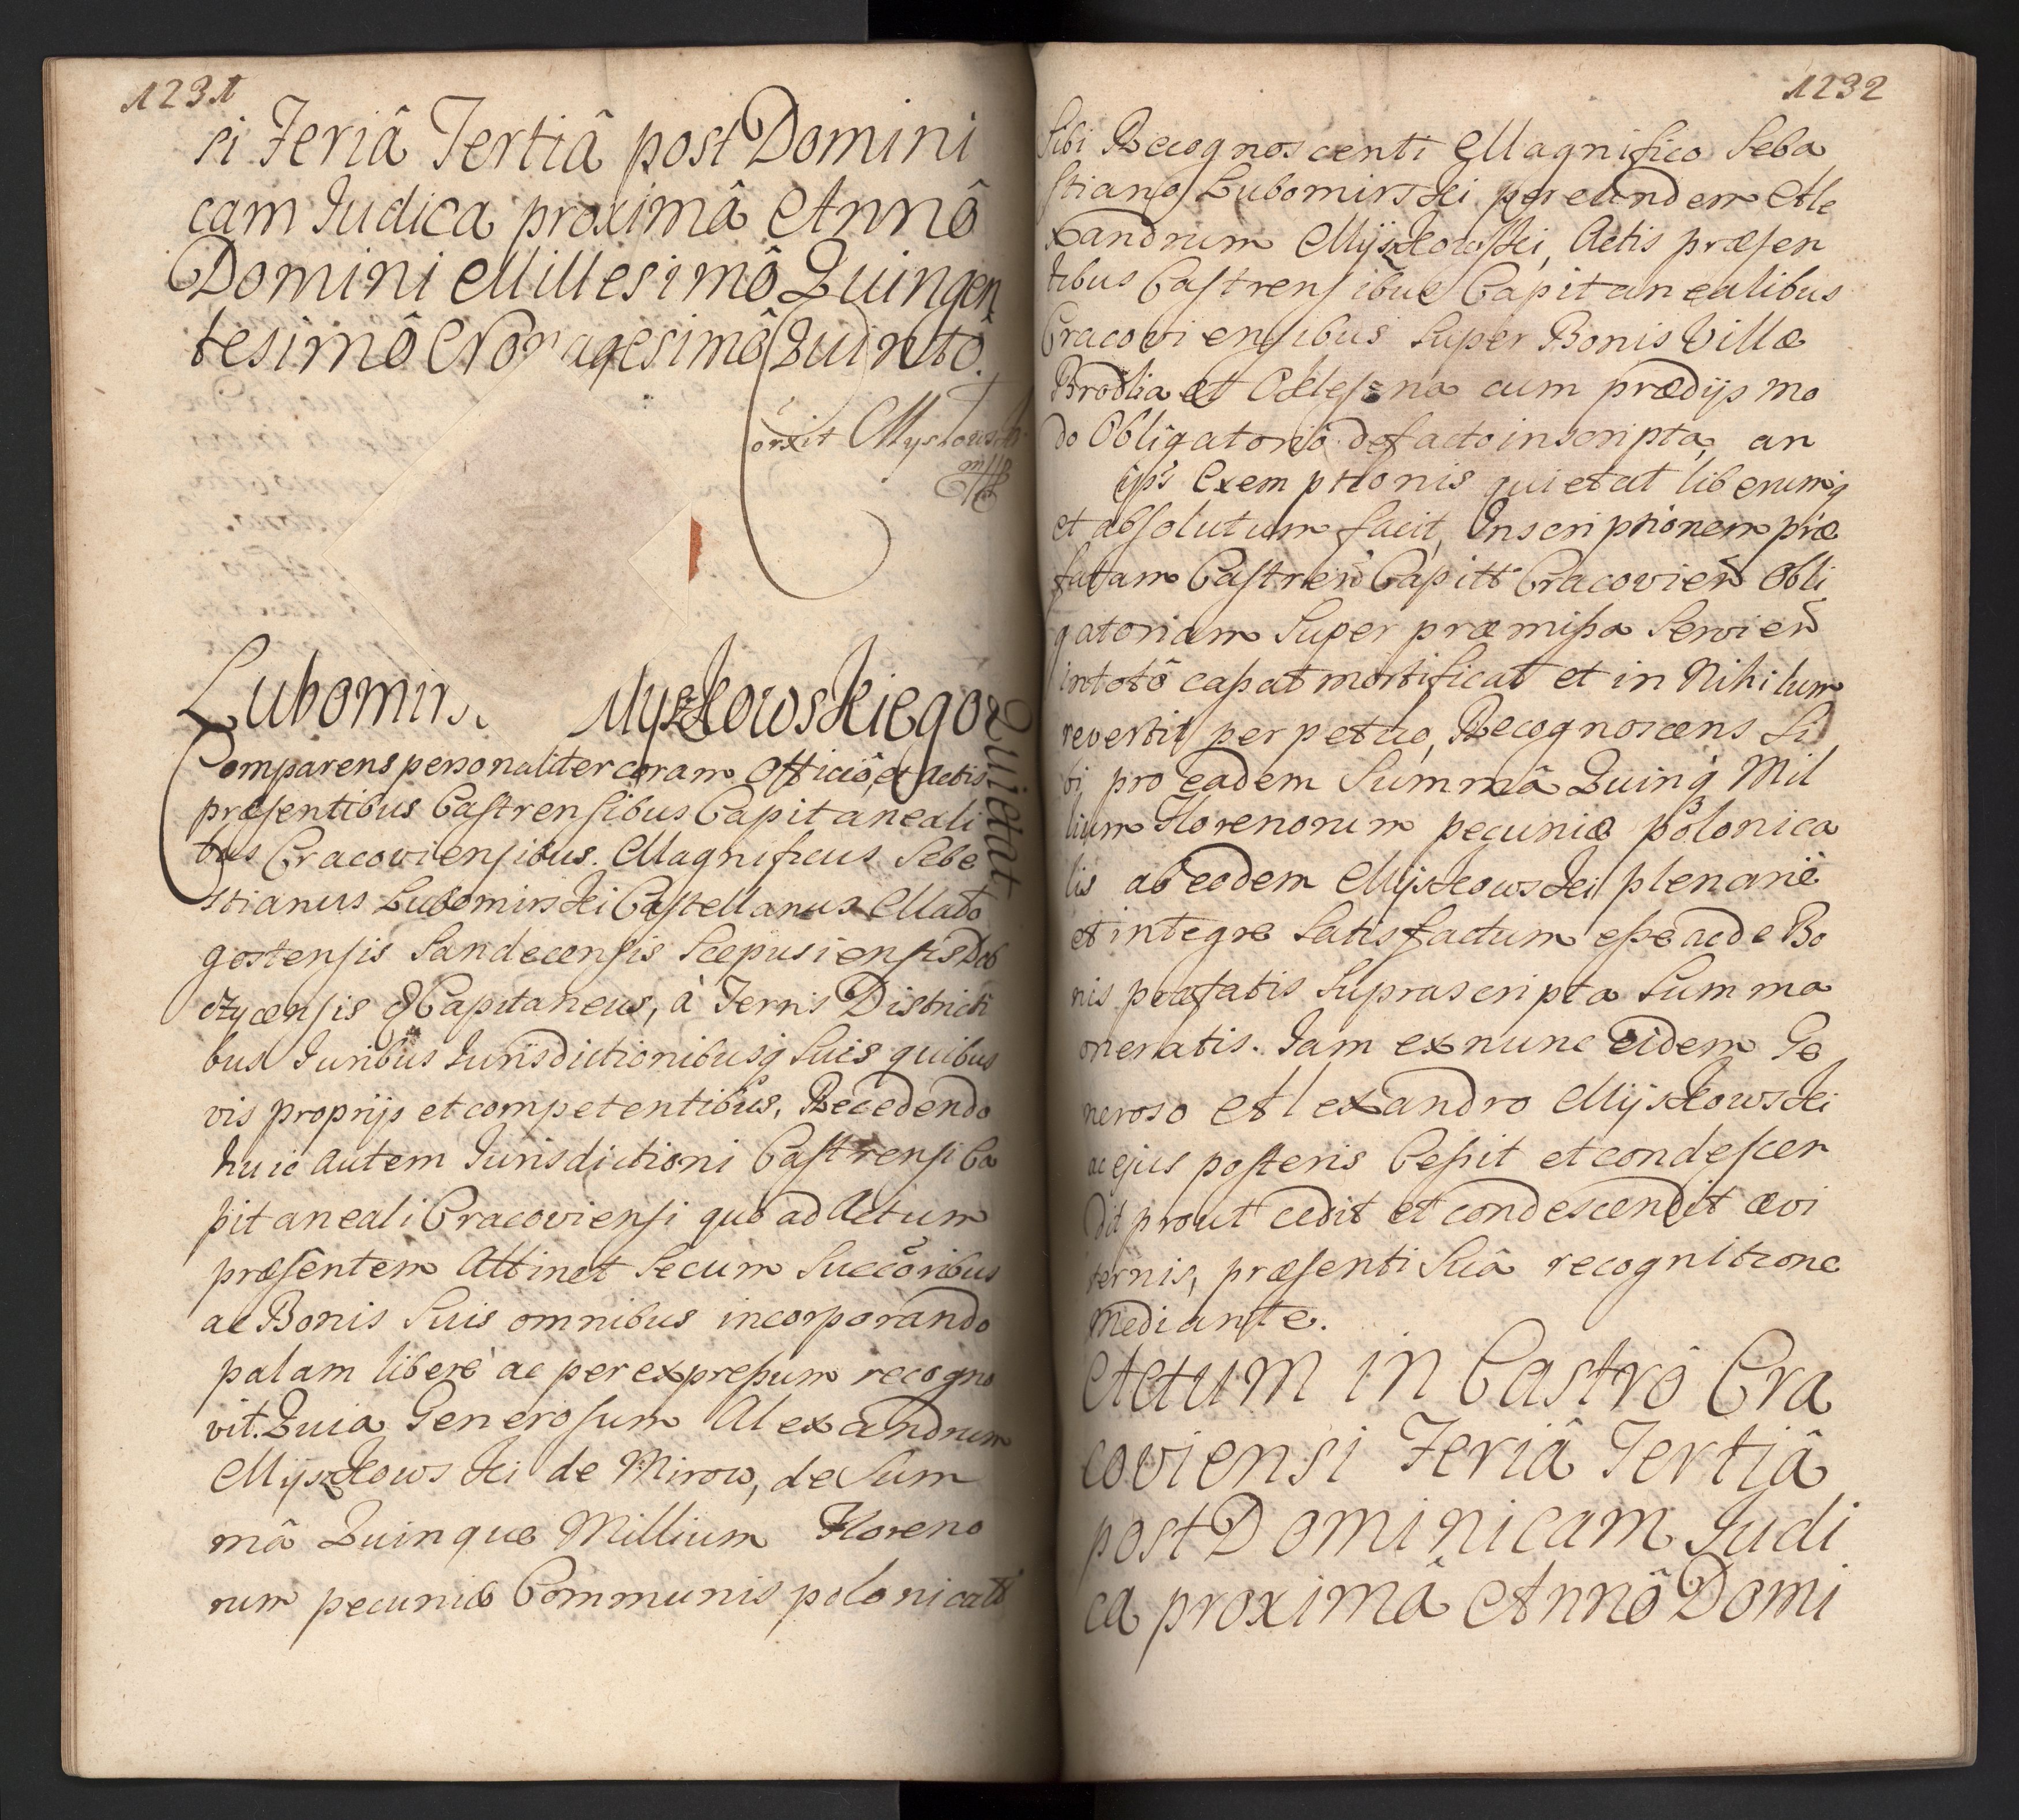 1231
si Feriâ Tertiâ post Domini
cam Iudica proximâ Annô
Domini Millesimô Quingen
tesimô Nonagesimô Quintô.
Myszkowski
mpp
Lubomirs Myszkowskiego
Quietat
Comparens personaliter coram Officiô, et Actis
præsentibus Castrensibus Capitaneali
bus Cracoviensibus. Magnificus Seba
stianus Lubomirski Castellanus Mało
gostensis Sandecensis Scepusiensis Dob
czycensis & Capitaneus, à Terris Districti
bus Iuribus Iurisdictionibusq Suis quibus
vis proprijs et competentibus, Recedendo
huic autem Iurisdictioni Castrensi Ca
pitaneali Cracoviensi quo ad Actum
præsentem attinet Secum Succoribus
ac Bonis Suis omnibus incorporando
palam liberè ac per expressum recogno
vit. Quia Generosum Alexandrum
Myszkowski de Mirow, de Sum
mâ Quinque Millium Floreno
rum pecuniæ Communis polonicali
1232
Sibi Recognoscenti Magnifico Seba
stiano Lubomirski per eundem Ale
xandrum Myszkowski, Actis præsen
tibus Castrensibus Capitanealibus
Cracoviensibus Super Bonis Villæ
Brodla et Oleszna cum prædijs mo
do Obligatoriô de facto inscripta, an
ijs Exemptionis quietat liberumq
et absolutum facit, Inscriptionem præ
fatam Castren Capitt Cracovien Obli
gatoriam Super præmissa Servien
in totô cassat mortificat et in Nihilum
revertit perpetuo, Recognoscens Si
bi pro eadem Summâ Quinq Mil
lium Florenorum pecuniæ polonica
lis ab eodem Myszkowski plenariè
et integre Satisfactum esse ac de Bo
nis præfatis Suprascripta Summa
oneratis. Iam ex nunc Eidem Ge
neroso Alexandro Myszkowski
ac ejus posteris Cessit et condescen
dit prout cedit et condescendit ævi
ternis, præsenti Suâ recognitione
mediante.
Actum in Castrô Cra
coviensi Feriâ Tertiâ
post Dominicam Iudi
ca proximâ Annô Domi